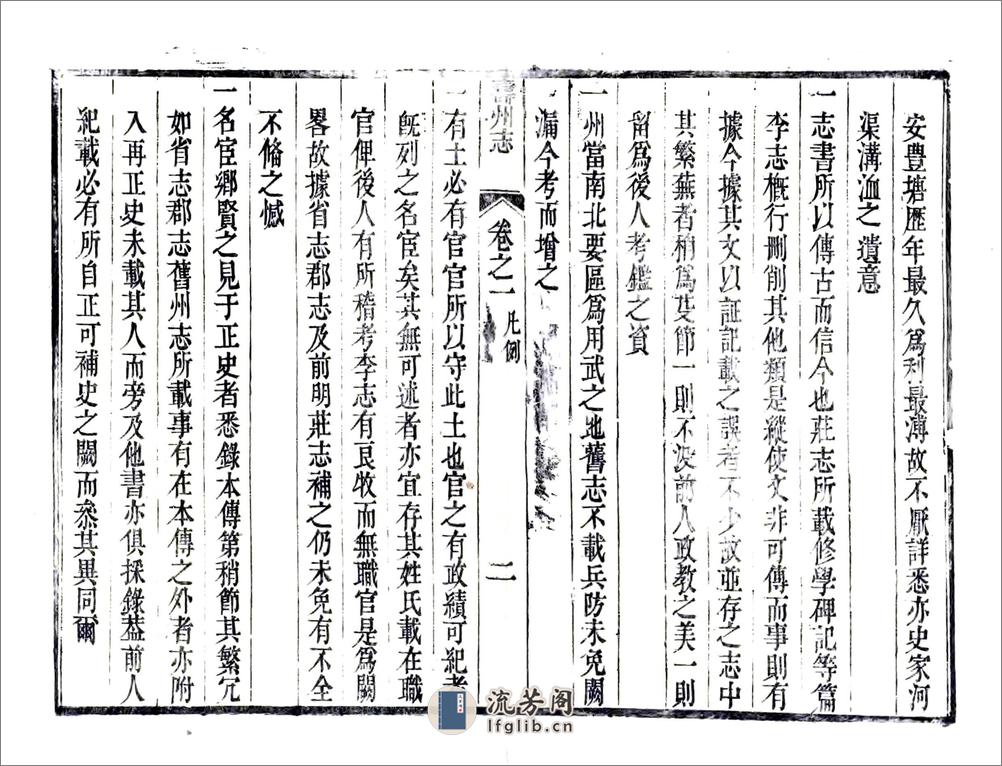 安豊塘歷年最久爲利最溥故不厭詳悉亦史家河
渠溝洫之遺意
一志書所以傳古而信今也莊志所載修學碑記等篇
李志槪行刪削其他類是縱使文非可傳而事則有
據今據其文以証記載之誤者不少故並存之志中
其繁蕪者稍爲芟節一則不没前人政教之美一則
留爲後人考鑑之資
一州當南北要區爲用武之地舊志不載兵防未免闕
漏今考而增之
壽州志
卷之一 凡例
二
一有土必有官官所以守此土也官之有政績可紀者
旣列之名宦矣其無可述者亦宜存其姓氏載在職
官俾後人有所稽考李志有良牧而無職官是爲闕
畧故據省志郡志及前明莊志補之仍未免有不全
不脩之憾
一名宦鄉賢之見于正史者悉錄本傳第稍節其繁冗
如省志郡志舊州志所載事有在本傳之外者亦附
入再正史未載其人而旁及他書亦俱採錄葢前人
紀載必有所自正可補史之闕而叅其異同爾
流芳阁
lfglib.cn